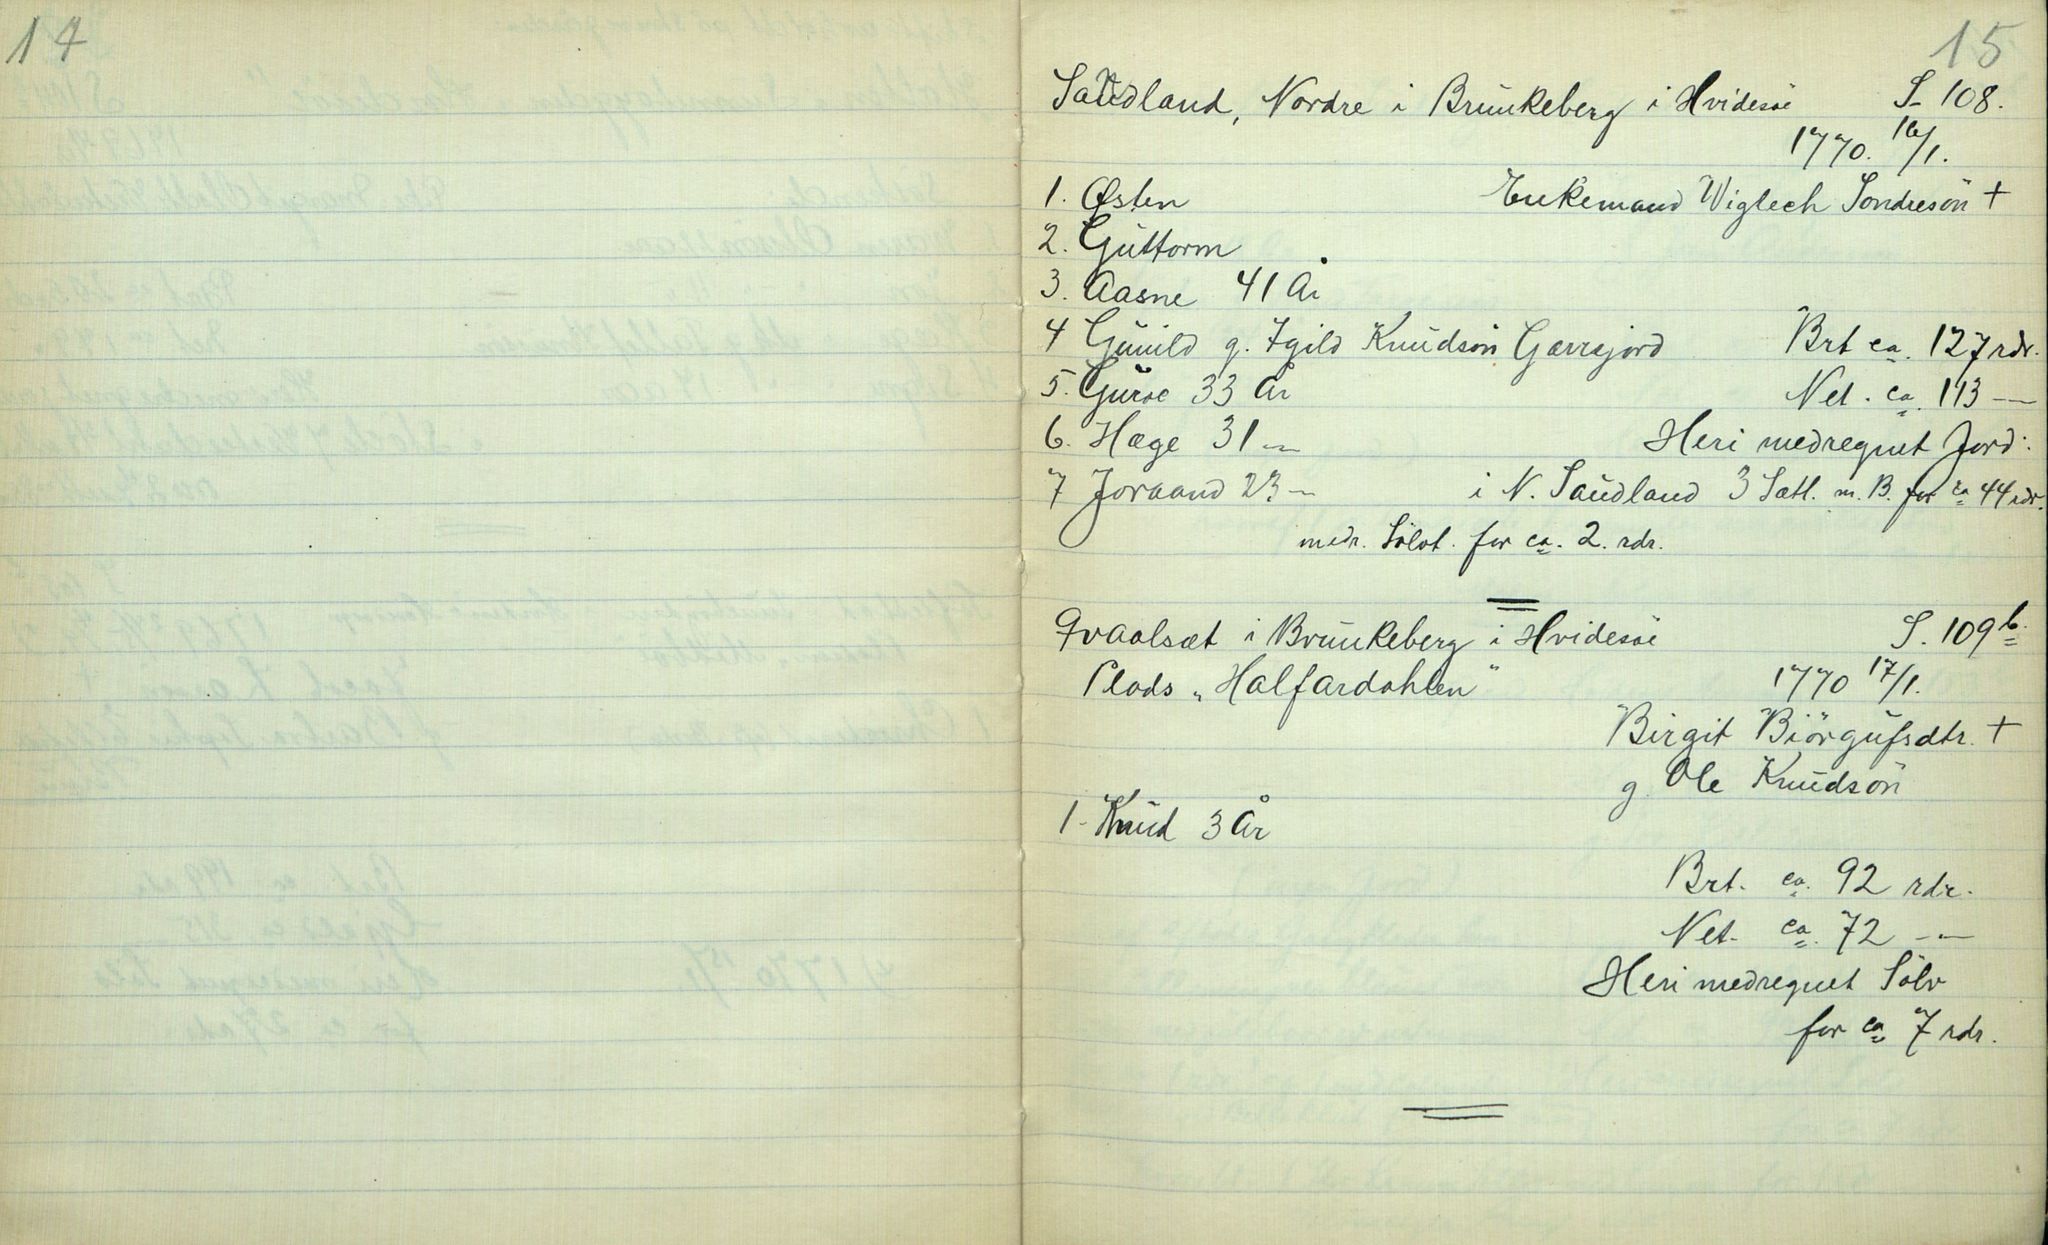 14
15
Saudland, Nordre i Brunkeberg i Hvidesøe S. 108.
1770. 16/1.
1. Østen Enkemand Wiglech Sondresön +
2. Guttorm
3. Aasne 41 År
4 Gunild g. Igild Knudsön Gavrsjord Brt ca. 127 rdr.
5. Guroe 33 År Net. ca. 113 —
6. Hæge 31 — Heri medregnet Jord:
7 Joraand 23 — i N. Saudland 3 Sætl. m. B. for ca 44 rdr.
medr. Sölvt. for ca. 2. rdr.
Qvaalsæt i Brunkeberg i Hvidesøe S. 109 b.
Plads „Halfardahlen" 1770 17/1.
Birgit Biörgufsdtr. +
g. Ole Knudsön
1. Knud 3 År
Brt. ca. 92 rdr.
Net. ca. 72 —
Heri medregnet Sölv
for ca 7 rdr.